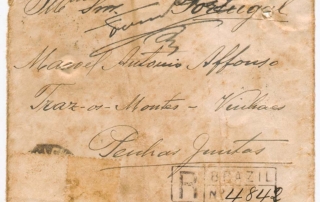 Illmo Snr Portugal
Manoel Antonio Affonso
Traz-os-Montes - Vinhaes
Penhas Juntas
R BRAZIL
No 4842